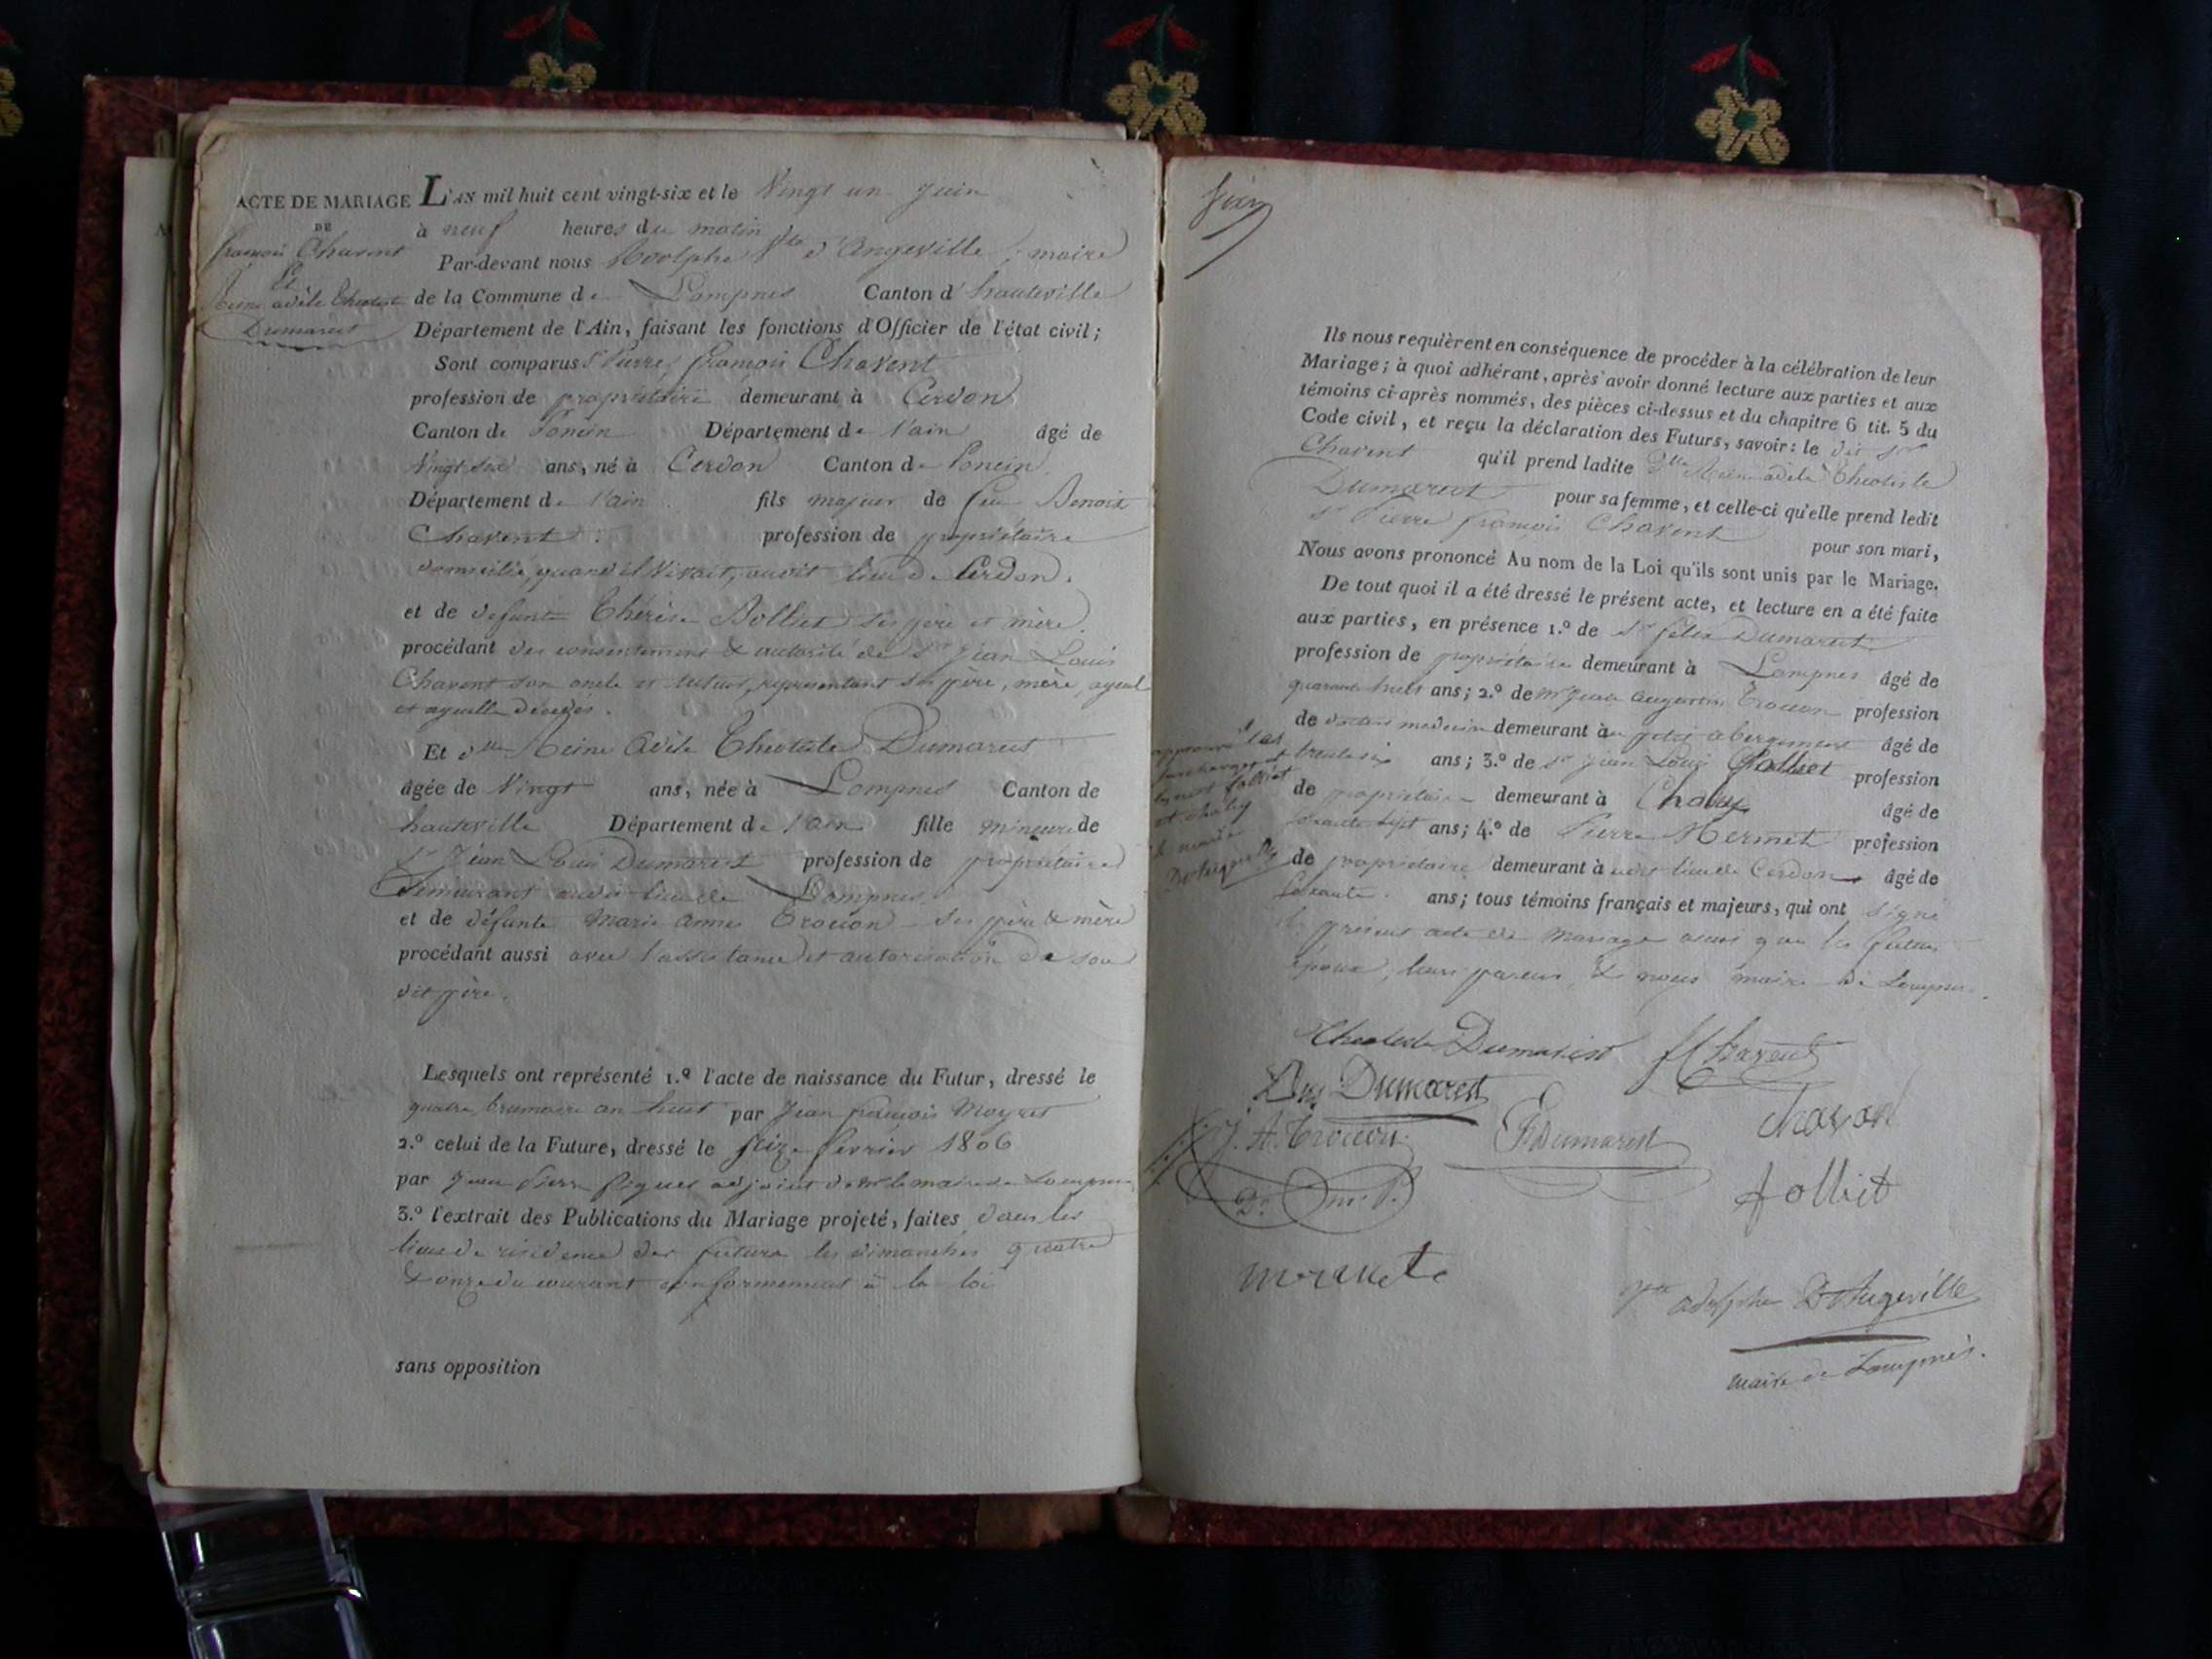 ACTE DE MARIAGE
DE
françois Chavent
Et
Reine adèle Theotiste
Dumarest
L'AN mil huit cent vingt-six et le Vingt un Juin
à neuf heures du matin
Par-devant nous Adolphe d'Angeville, maire
de la Commune de Lompnes Canton d'hauteville
Département de l'Ain, faisant les fonctions d'Officier de l'état civil;
Sont comparus Sr Pierre françois Chavent
profession de propriétaire demeurant à Cerdon
Canton de Poncin Département de l'ain âgé de
Vingt six ans, né à Cerdon Canton de Poncin
Département de l'ain fils majeur de feu Benoit
Chavent profession de propriétaire
domicilié, quand il Vivait, audit lieu de Cerdon.
et de defunte Thérèse Bolliet ses père et mère
procédant du consentement & autorité de Sr Jean Louis
Chavent son oncle et tuteur, représentant ses père, mère, ayeul
et ayeulle décédés.
Et dlle Reine Adèle Theotiste Dumarest
âgée de Vingt ans, née à Lompnes Canton de
hauteville Département de l'ain fille mineure de
Sr Jean Louis Dumarest profession de propriétaire
Demeurant audit lieu de Lompnes
et de défunte Marie Anne Trocon ses père & mère
procédant aussi avec l'assistance et autorisation de son
dit père.
Lesquels ont représenté 1.º l'acte de naissance du Futur, dressé le
quatre brumaire an huit par Jean françois Moyret
2.º celui de la Future, dressé le Seize février 1806
par Jean Pierre adjoint de Mr le maire de Lompnes
3.º l'extrait des Publications du Mariage projeté, faites dans les
lieux de résidence des futurs les dimanches quatre
& onze du courant conformement à la loi
sans opposition
Ils nous requièrent en conséquence de procéder à la célébration de leur
Mariage; à quoi adhérant, après avoir donné lecture aux parties et aux
témoins ci-après nommés, des pièces ci-dessus et du chapitre 6 tit. 5 du
Code civil, et reçu la déclaration des Futurs, savoir: le dit Sr
Chavent qu'il prend ladite Dlle Reine adèle Theotiste
Dumarest pour sa femme, et celle-ci qu'elle prend ledit
Sr Pierre françois Chavent pour son mari,
Nous avons prononcé Au nom de la Loi qu'ils sont unis par le Mariage.
De tout quoi il a été dressé le présent acte, et lecture en a été faite
aux parties, en présence 1.º de Sr felix Dumarest
profession de propriétaire demeurant à Lompnes âgé de
quarante huit ans; 2.º de Mr Jean Augustin Trocon profession
de docteur medecin demeurant au petit abergement âgé de
trente six ans; 3.º de Sr Jean Louis Jolliet profession
de propriétaire demeurant à Chaley âgé de
sept ans; 4.º de Pierre Mermet profession
de propriétaire demeurant à lieu de Cerdon âgé de
Soixante ans; tous témoins français et majeurs, qui ont signé
le présent acte de mariage ainsi que les futurs
époux, leurs parens, & nous maire de Lompnes.
approuvé les
surcharges et
et chaley
le maire
D'Angeville
Theotiste Dumarest
Chavent
Dumarest
Chavent
J. A. Trocon
F Dumarest
D. m. P.
Jolliet
Adolphe D'Angeville
maire de Lompnes.